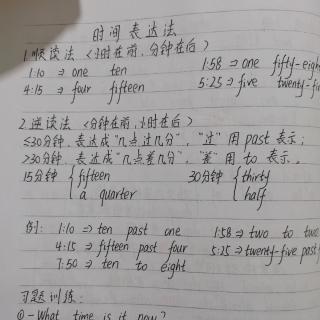 时间表达法
1.顺读法 <小时在前，分钟在后>
1:10 ⇒ one ten 1:58 ⇒ one fifty-eigh
4:15 ⇒ four fifteen 5:25 ⇒ five twenty-fi
2.逆读法 <分钟在前，小时在后>
≤30分钟，表达成"几点过几分"，"过"用past表示;
>30分钟，表达成"几点差几分"，"差"用to表示。
15分钟 { fifteen 30分钟 { thirty
a quarter half
例: 1:10 ⇒ ten past one 1:58 ⇒ two to two
4:15 ⇒ fifteen past four 5:25 ⇒ twenty-five past
7:50 ⇒ ten to eight
习题训练:
①-What time is it now?